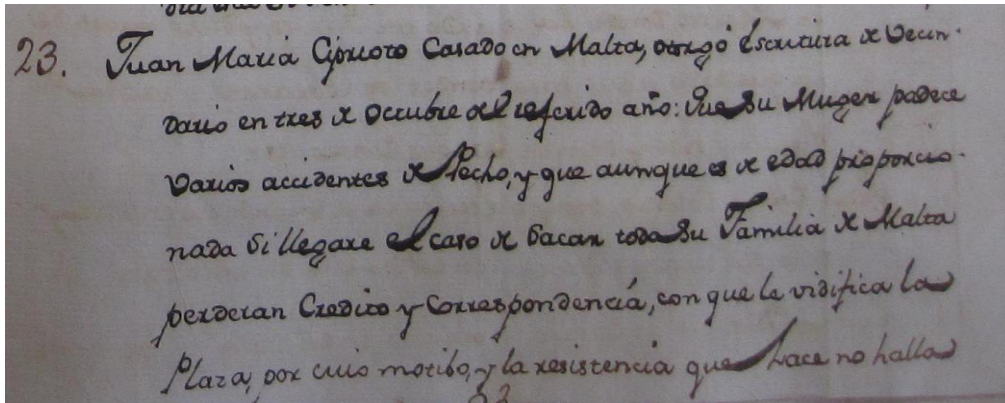 23. Juan Maria Ciprioto Casado en Malta, otorgó Escritura de Vecin-
dario en tres de Octubre del referido año: Que su Muger padece
varios accidentes de Pecho, y que aunque es de edad proporcio-
nada si llegare el caso de sacar toda su Familia de Malta
perderan Credito y Correspondencia, con que le vidifica la
Plaza, por cuio motibo, y la resistencia que hace no halla